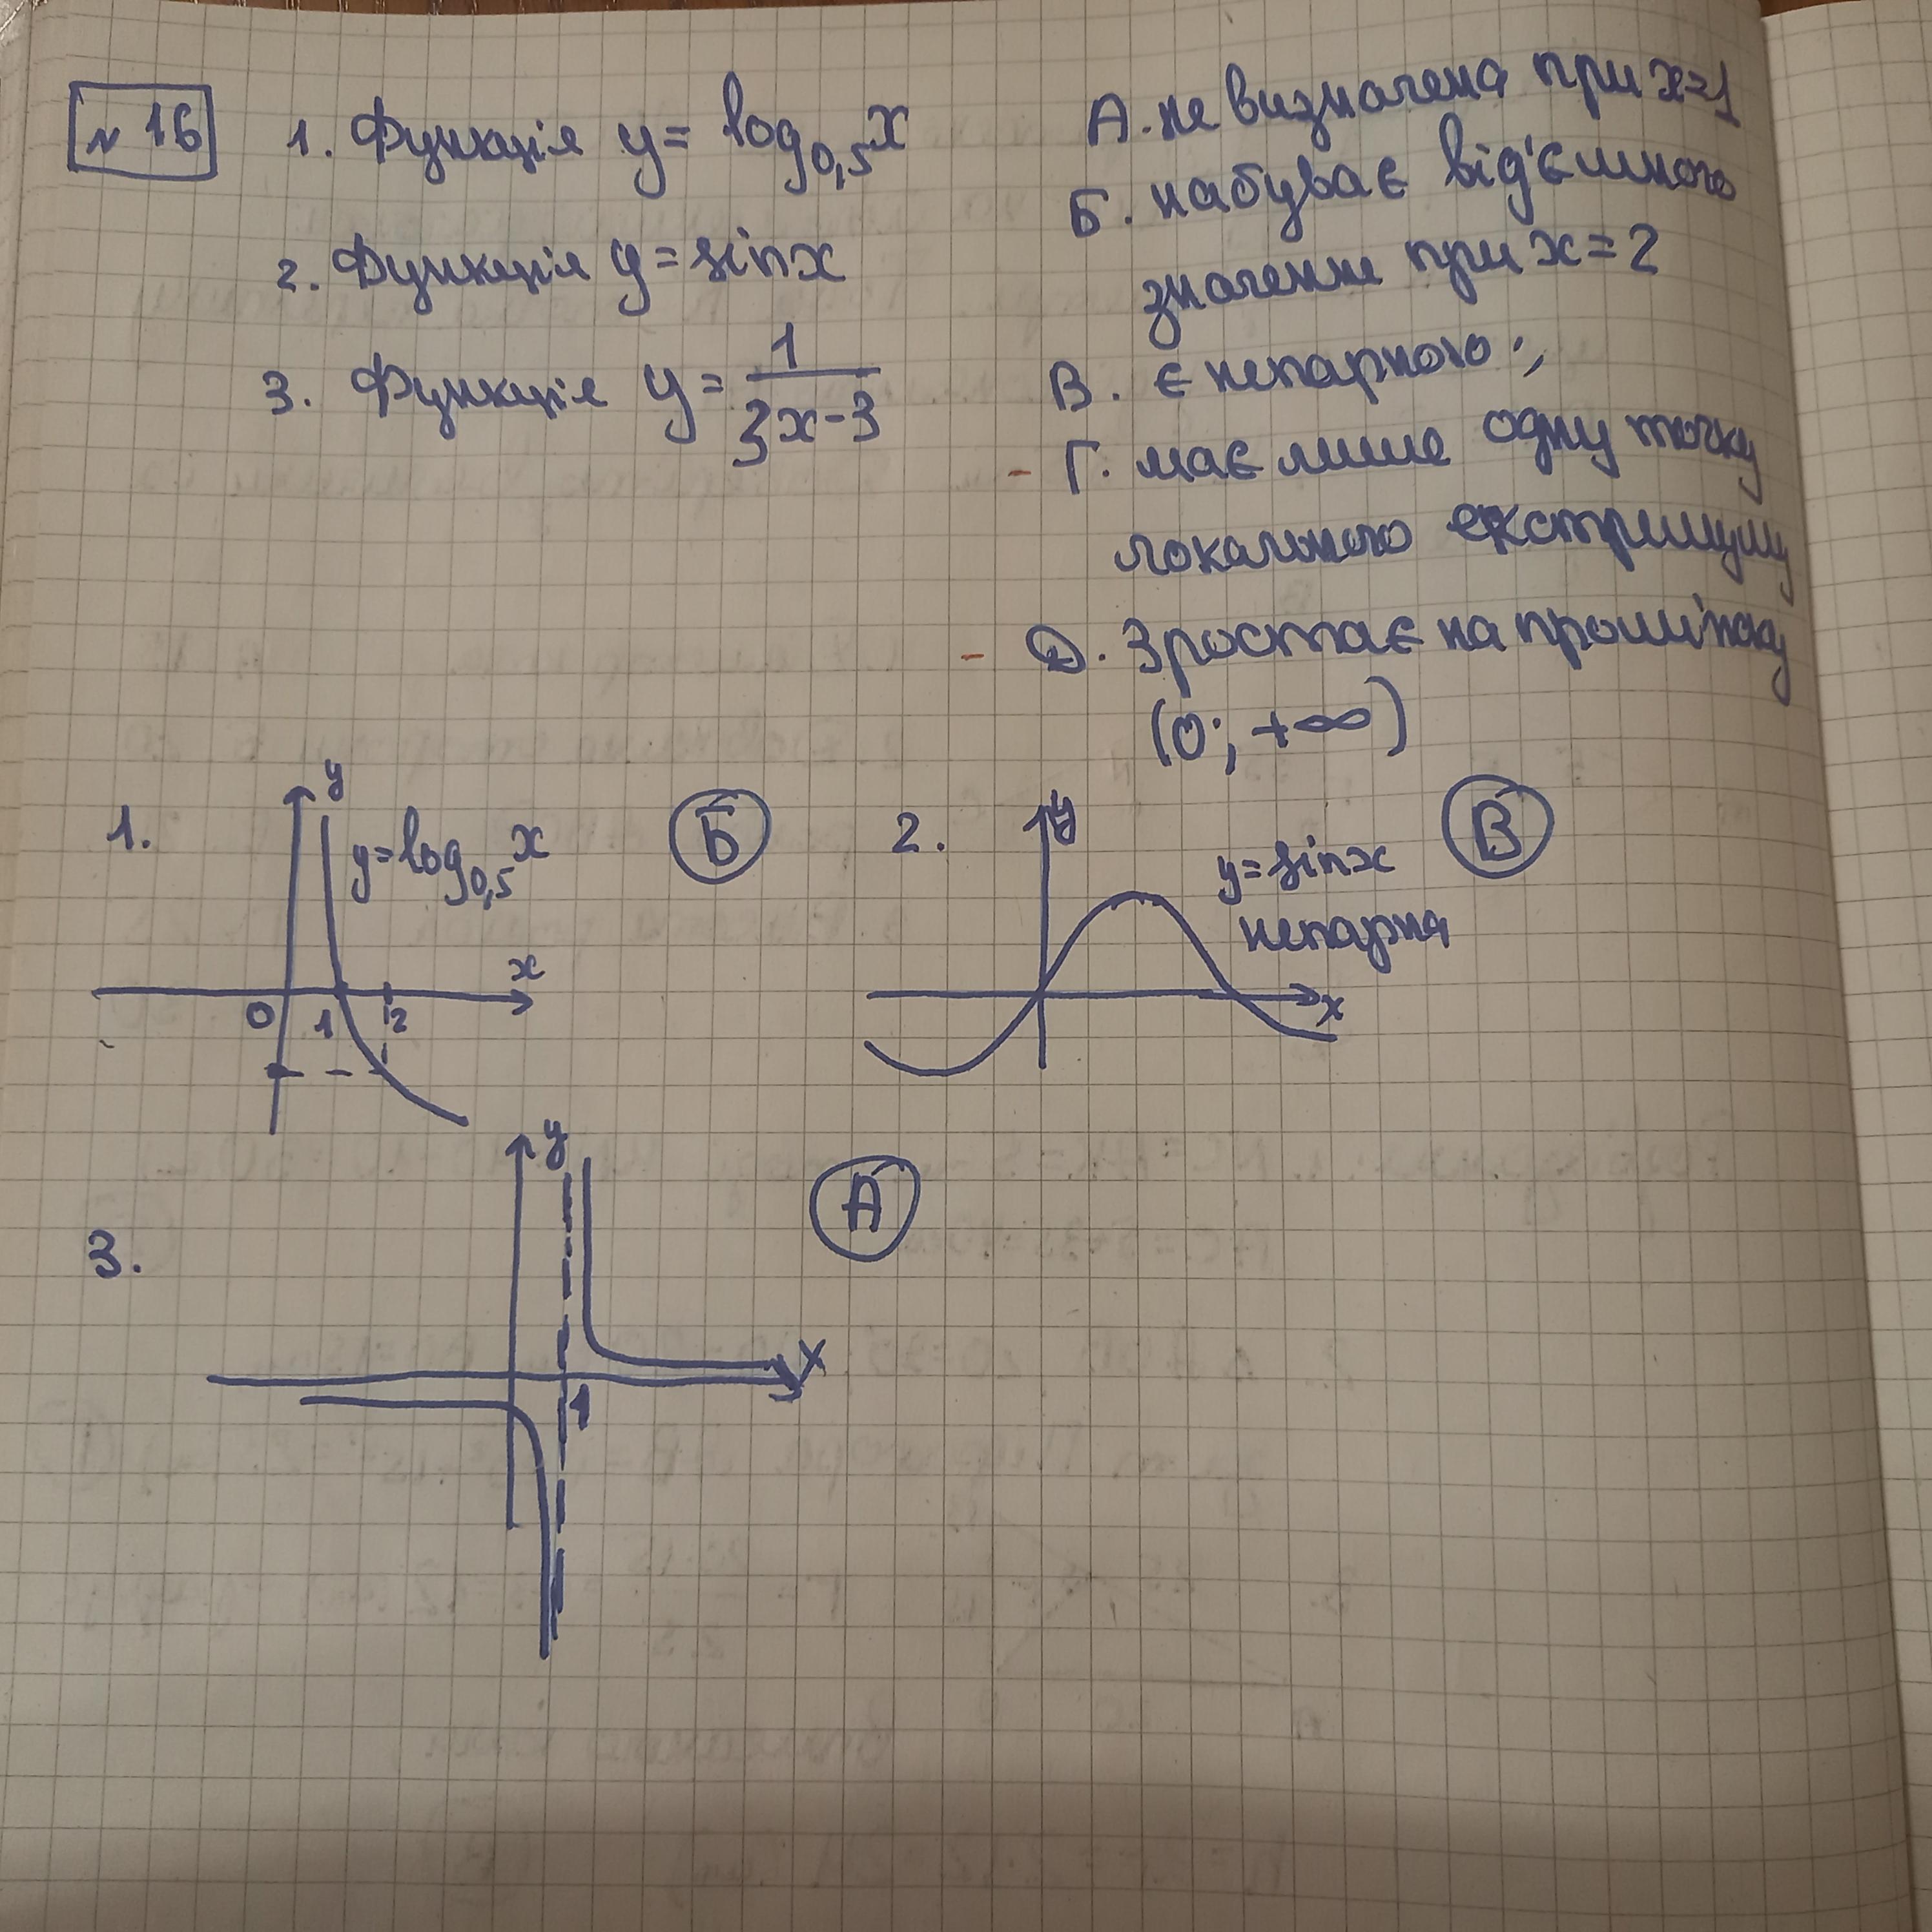 № 16
1. Функція y = log₀,₅x
2. Функція y = sinx
3. Функція y = 1/(3x-3)
А. не визначена при x=1
Б. набуває від'ємного
значення при x = 2
В. є непарною;
- Г. має лише одну точку
локального екстримуму
- Д. Зростає на проміжку
(0; +∞)
1. y Б
y=log₀,₅x
x
0 1 2
2. y В
y=sinx
непарна
x
3. y А
x
1